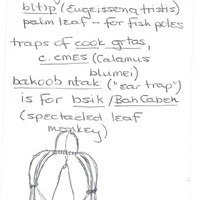 bltbp (Eugeissona tristis)
palm leaf - for fish poles
traps of cook grtas,
c.cmes (Calamus
blumei)
bakoob ntak ("ear trap")
is for bsik / BahCabeh
(spectacled leaf
monkey)